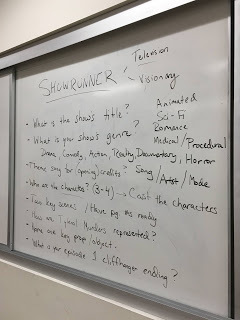 SHOWRUNNER - Television
- Visionary
- What is the shows title?
- What is your show's genre?
Animated
Sci-Fi
Romance
Medical/Procedural
Drama, Comedy, Action, Reality, Documentary, Horror
- Theme song for opening/credits? Song/Artist/Mode
- Who are the characters? (3-4) → Cast the characters
- Two key scenes / Have pg. #s ready
- How are 7 jewel murders represented?
- Name one key prop/object.
- What is your episode 1 cliffhanger ending?